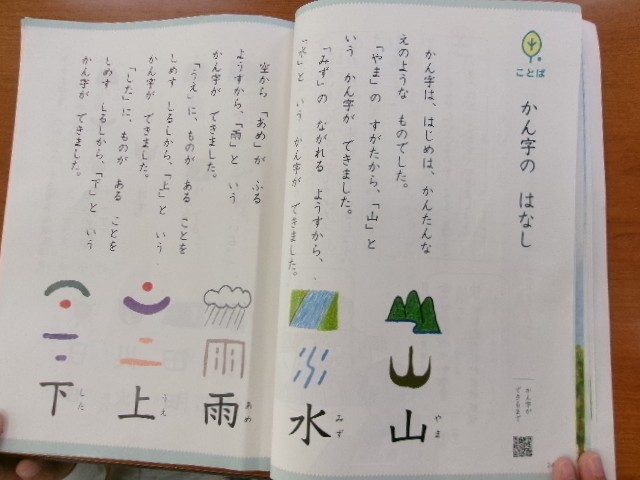 ことば
かん字の はなし
かん字は、はじめは、かんたんな
えのような ものでした。
「やま」の すがたから、「山」と
いう かん字が できました。
「みず」の ながれる ようすから、
「水」と いう かん字が できました。
空から 「あめ」が ふる
ようすから、「雨」と いう
かん字が できました。
「うえ」に、ものが ある ことを
しめす しるしから、「上」と いう
かん字が できました。
「した」に、ものが ある ことを
しめす しるしから、「下」と いう
かん字が できました。
かん字が
できるまで
山 やま
水 みず
雨 あめ
上 うえ
下 した